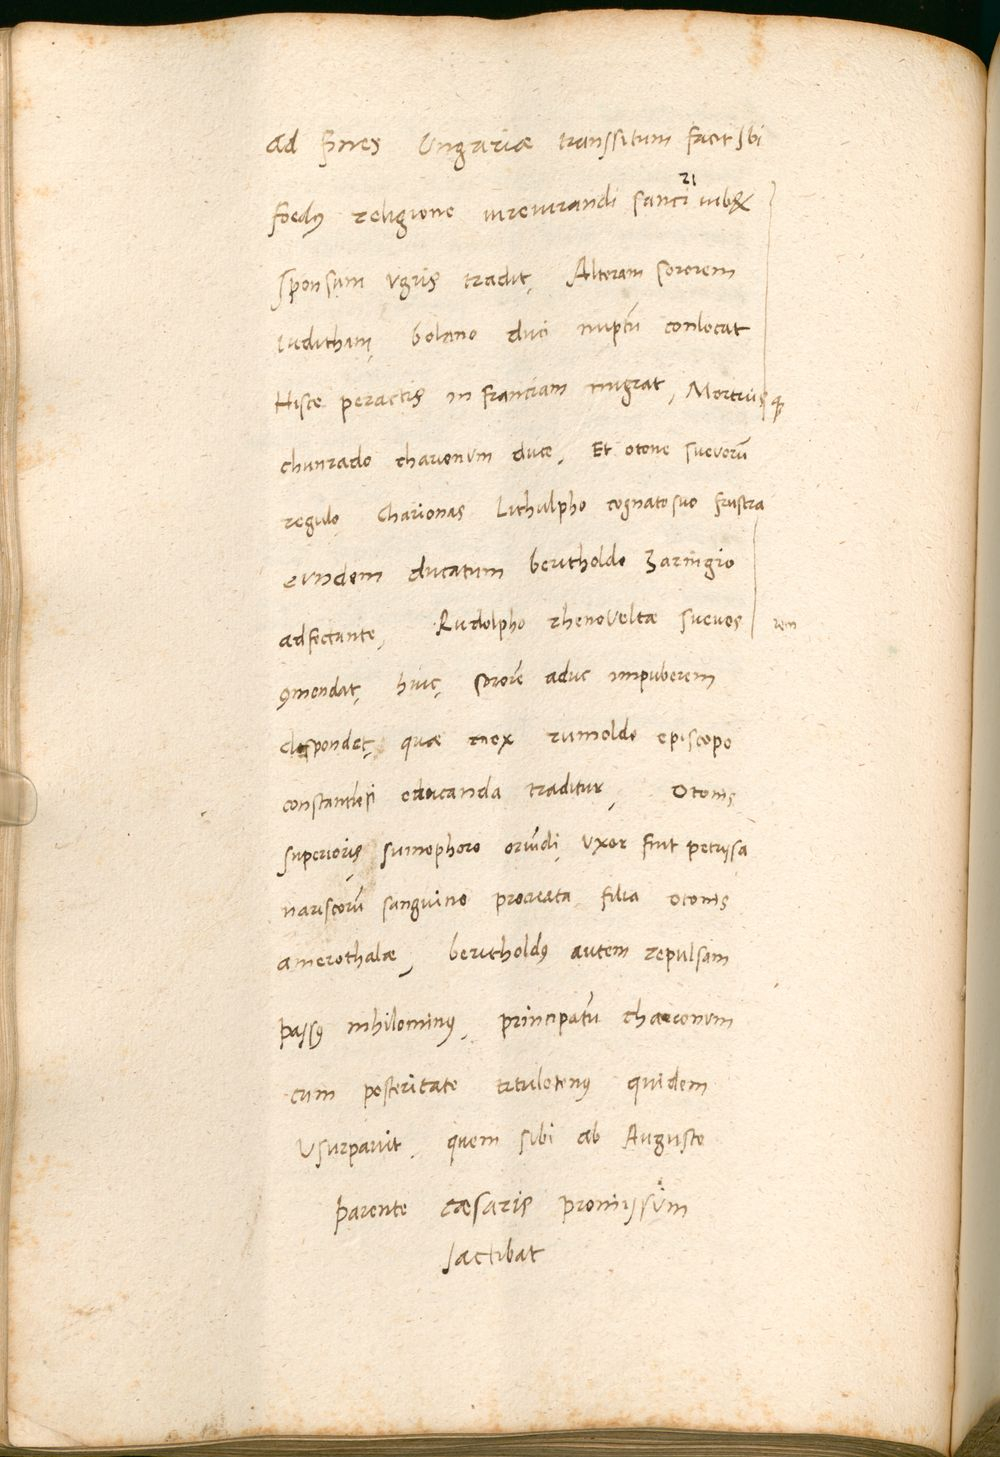 ad fines Ungariæ transsitum facit Ibi
ri
foedꝰ religione iureiurandi sanci iubet
sponsum Vgris tradit, Alteram sororem
iuditham, bolano duci nuptũ conlocat
Hisce peractis in franciam migrat, Mortuis qꝫ
chunrado charionum duce, Et otone sueuorũ
regulo, Charionas Lithulpho cognato suo frustra
eundem ducatum beritholdo Zaringio
adfectante, Rudolpho rhenoveltæ sueuos
rem
ꝯmendat, huic, sororẽ aduc impuberem
despondet, quæ mox rumoldo episcopo
constantiẽsi educanda traditur, Otonis
superioris, suinophoro oriũdi, Vxor fuit
nariscorũ sanguine procreata filia Otonis
amerothalæ, beritholdꝰ autem repulsam
passꝰ nihilominꝰ, principatũ charionum
cum posteritate titulotenꝰ quidem
Usurpauit, quem sibi ab Augusto
parente cæsaris promissum
Iactibat